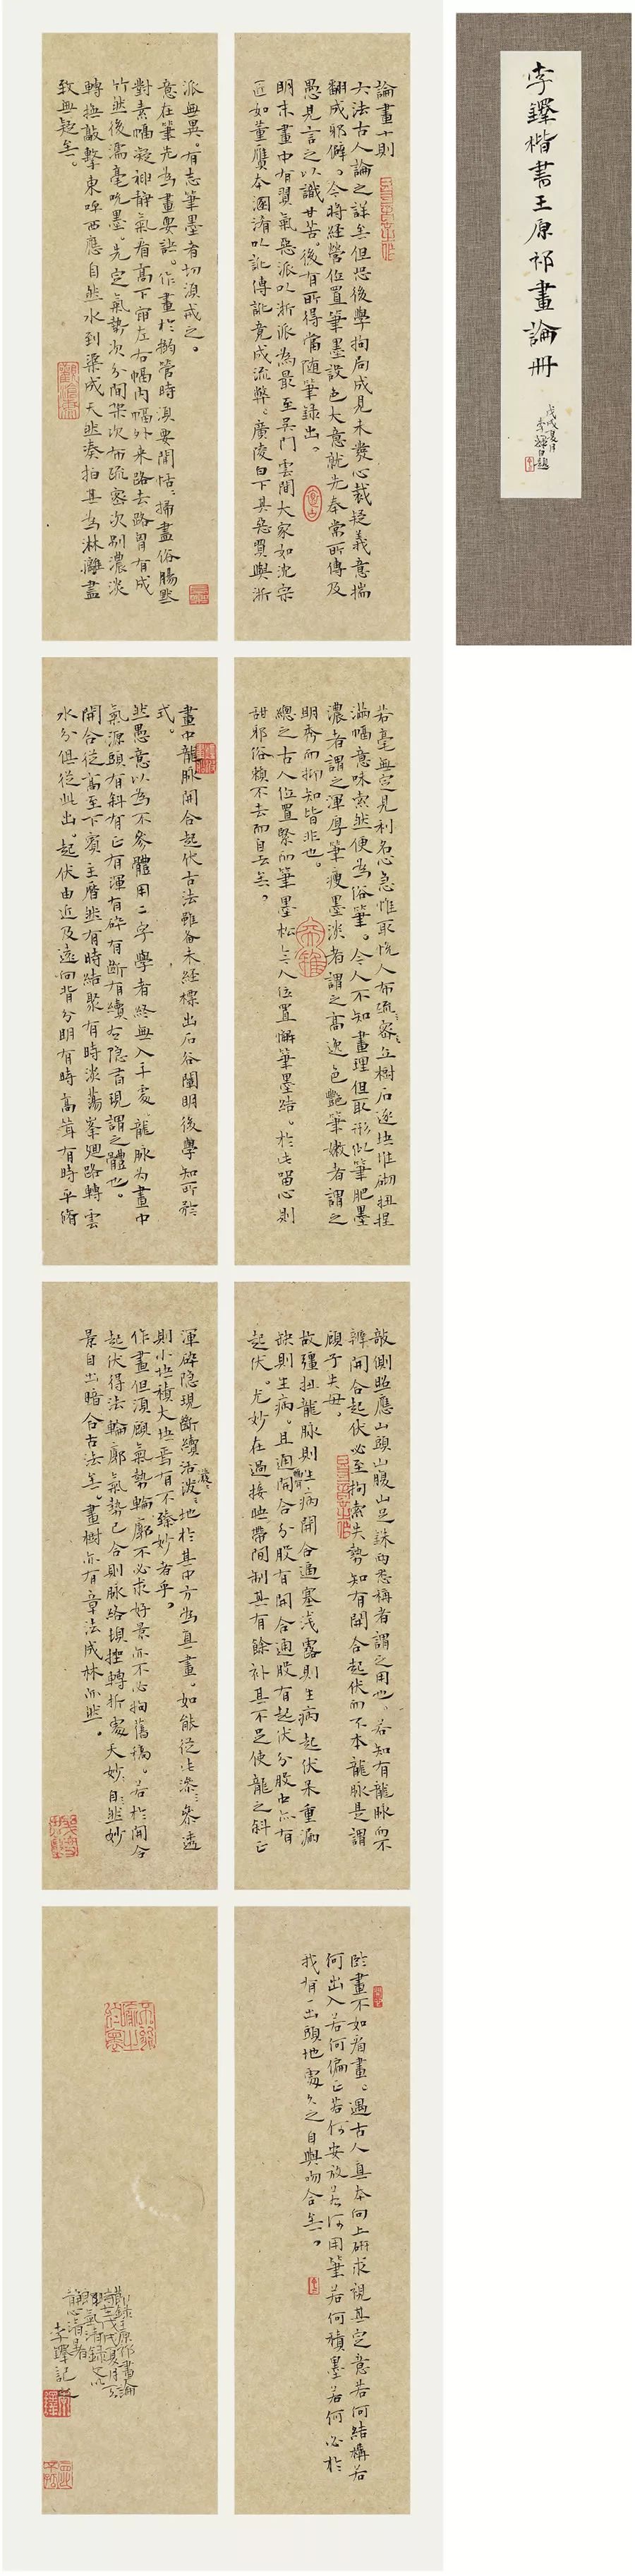 李鐸楷書王原祁畫論冊
戊戌夏月
李鐸自題
論畫十則
六法古人論之詳矣但恐後學拘局成見未發心裁疑義意揣
翻成邪僻。今將經營位置筆墨設色大意就先奉常所傳及
愚見言之以識甘苦。後有所得當隨筆錄出。
明末畫中有習氣惡派以浙派為最至吳門雲間大家如沈宗
匠如董贋本溷淆以訛傳訛竟成流弊。廣陵白下其惡習與浙
派無異。有志筆墨者切須戒之。
意在筆先為畫要訣。作畫於搦管時須要閒恬、掃盡俗腸默
對素幅凝神靜氣看高下審左右幅內幅外來路去路胸有成
竹然後濡毫吮墨。先定氣勢次分間架次布疏密次別濃淡
轉換敲擊東呼西應自然水到渠成天然湊拍其為淋漓盡
致無疑矣。
若毫無定見利名急惟取悅人布疏疏密密立樹石逐块堆砌扭捏
滿幅意味索然便為俗筆。今人不知畫理但取形似筆肥墨
濃者謂之渾厚筆瘦墨淡者謂之高逸色艷筆嫩者謂之
明秀而抑知皆非也。
總之古人位置緊而筆墨松今人位置懈筆墨結。於此留心則
甜邪俗賴不去而自去矣。
畫中龍脉開合起伏古法雖备未經標出石谷闡明後學知所於
式。
然愚意以為不參體用二字學者終無入手處。龍脉為畫中
氣源頭有斜有正有渾有碎有斷有續有隐有現謂之體也。
開合從高至下賓主歷然有時結聚有時淡蕩峯廻路轉雲
水分俱從此出。起伏由近及遠向背分明有時高聳有時平脩
敧側照應山頭山腹山足銖兩悉稱者謂之用也、若知有龍脉而不
辨開合起伏必至拘索失勢知有開合起伏而不本龍脉是謂
顧子失母。
故彊扭龍脉則生病開合逼塞浅露則生病起伏呆重漏
缺則生病。且通開合分股有開合通股有起伏分股中亦有
起伏。尤妙在過接映帶間制其有餘补其不足使龍之斜正
渾碎隐現斷續活潑潑地於其中方為真畫。如能從此參參透
則小块積大块焉有不臻妙者乎。
作畫但須顧氣勢輪廓不必求好景亦不必拘舊稿。若於開合
起伏得法輪廓氣勢已合則脉絡頓挫轉折處天妙自然妙
景自出暗合古法矣。畫樹亦有章法成林亦然。
臨畫不如看畫。遇古人真本向上研求視其定意若何結構若
何出入若何偏正若何安放若何用筆若何積墨若何必於
我有一出頭地處久之自與吻合矣。
節錄王原祁畫論
李鐸記